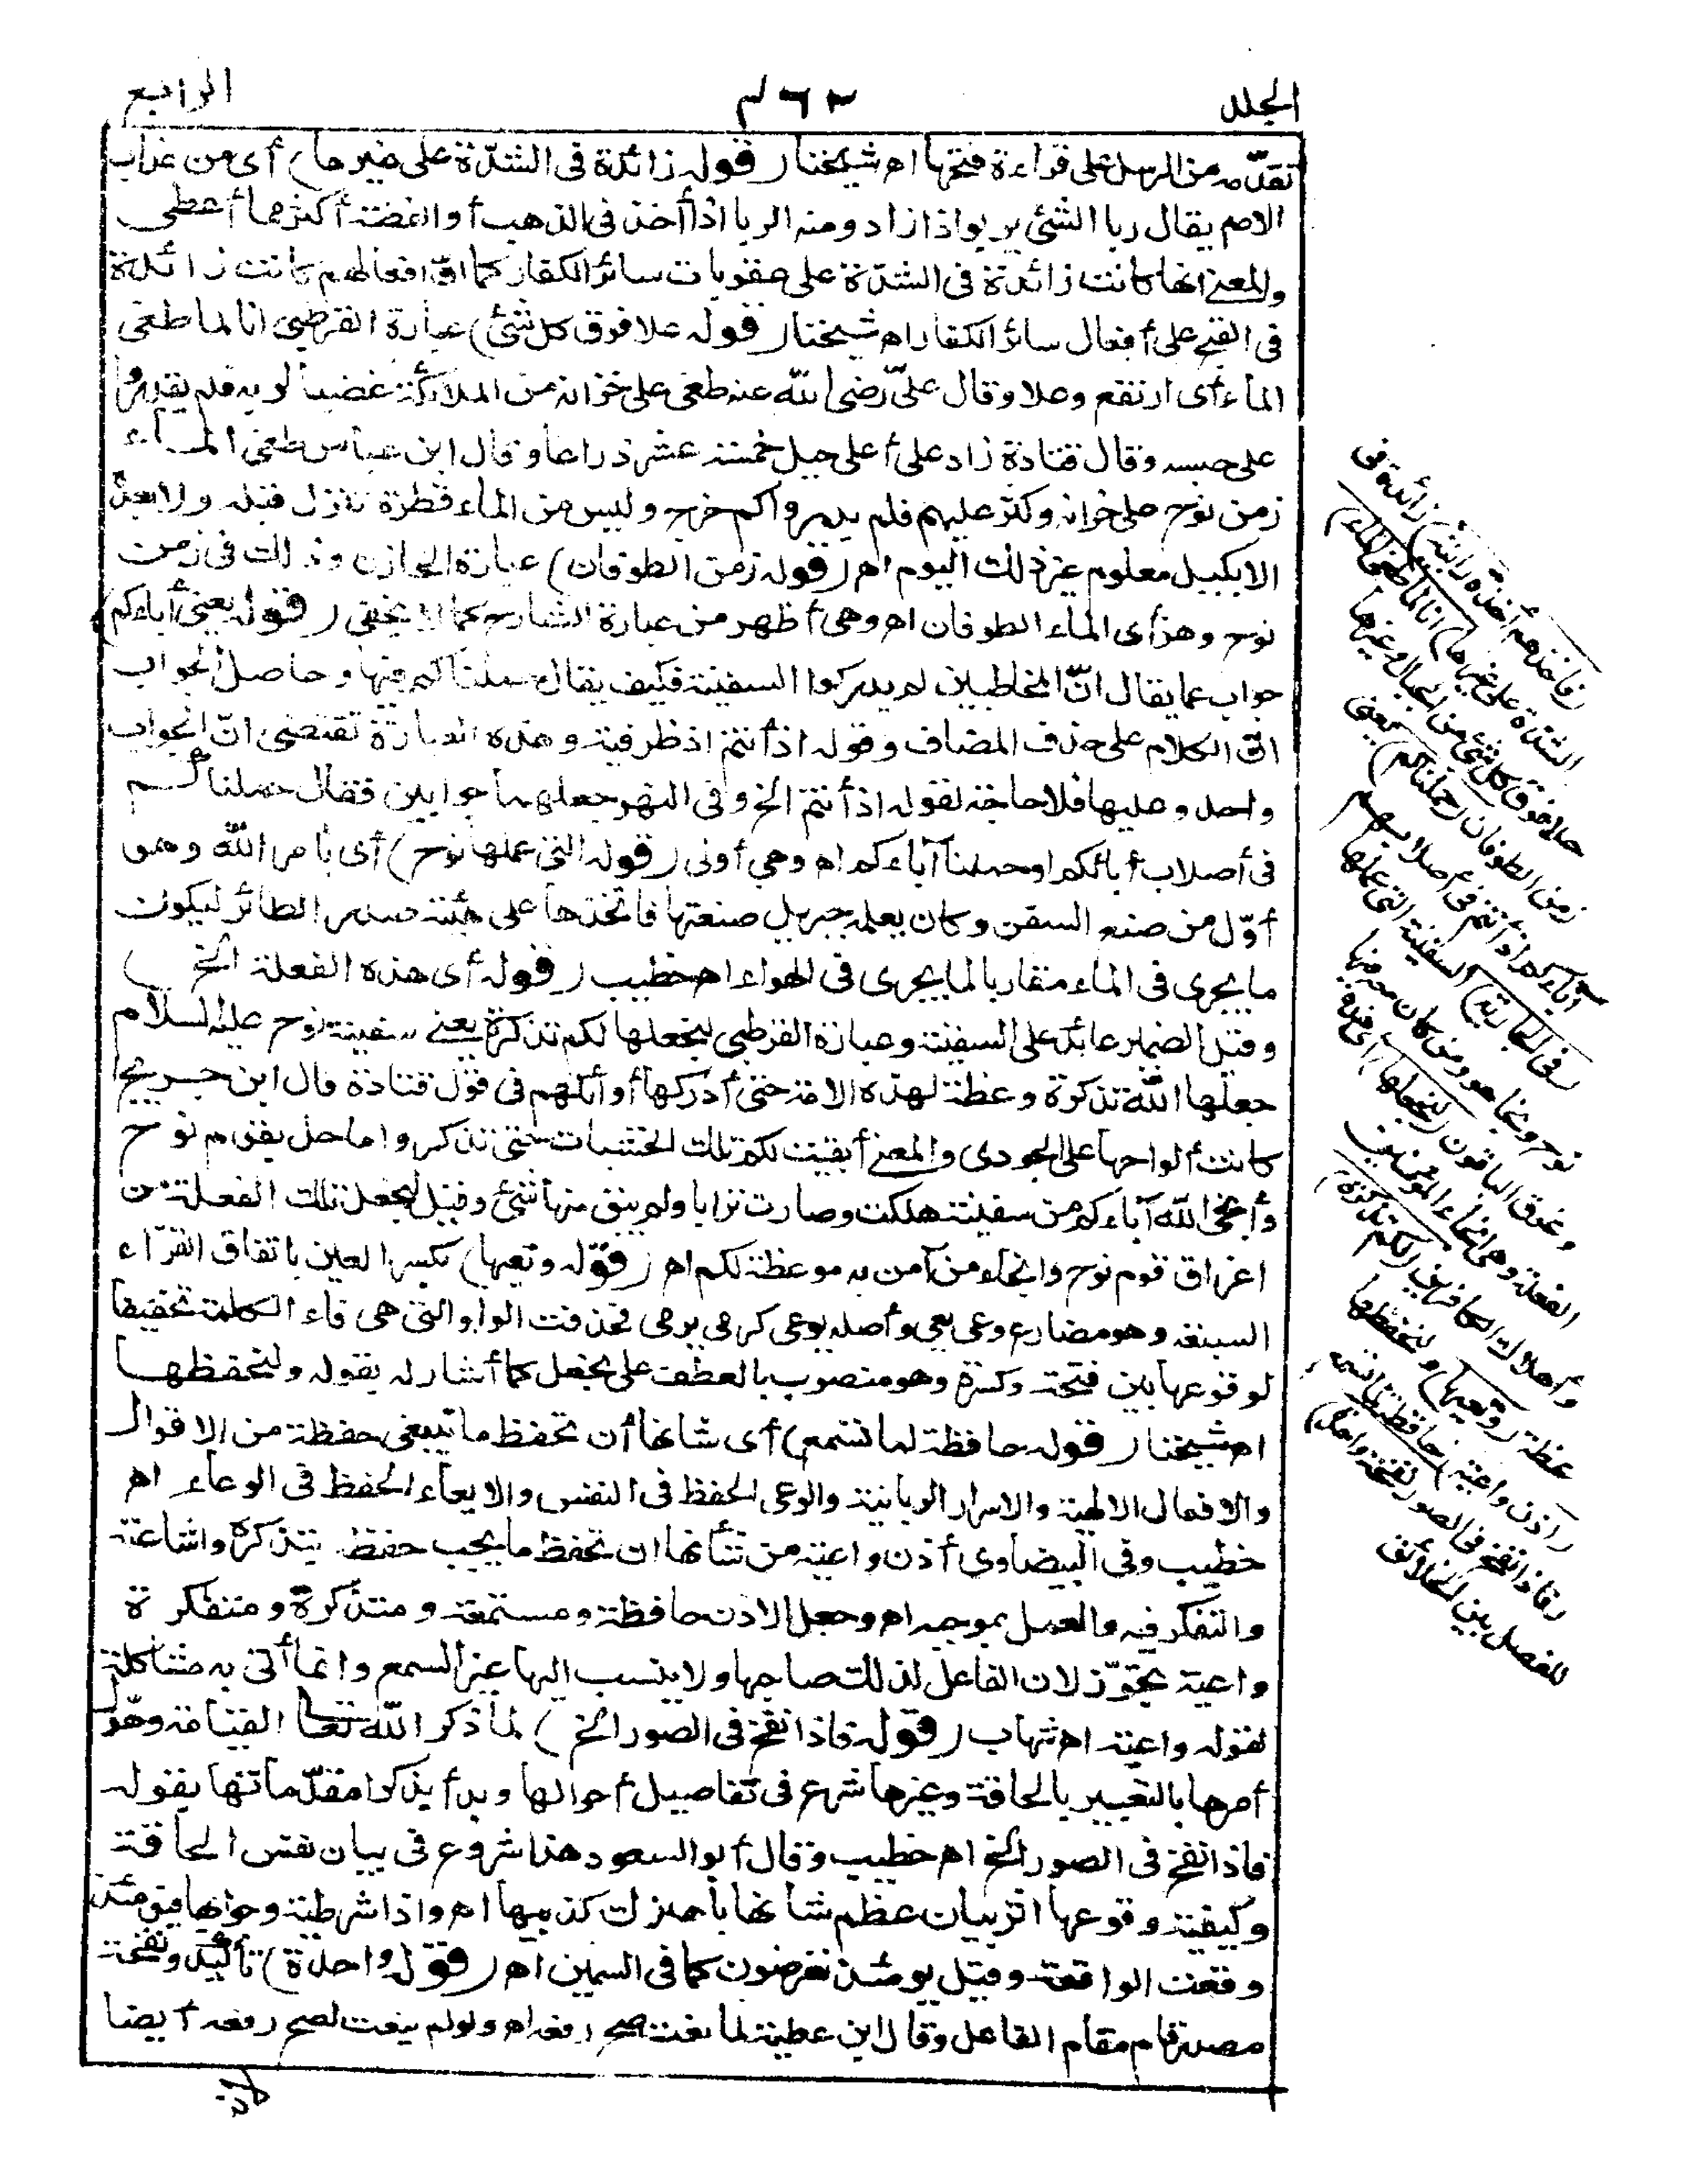 الجلد ٤٦٣ الرابع
تقدّمه من الرسل على قراءة فتحها اه شيخنا (قوله زائدة في الشدّة على غيرها) أى من عذاب
الامم يقال ربا الشئ يربو اذا زاد ومنه الربا اذا أخذ في الذهب أو الفضة أكثر مما أعطى
والمعنى انها كانت زائدة في الشدّة على عقوبات سائر الكفار كما انّ افعالهم كانت زائدة
في القبح على أفعال سائر الكفار اه شيخنا (قوله علا فوق كل شئ) عبارة القرطبى انا لما طغى
الماء أى ارتفع وعلا وقال علىّ رضى الله عنه طغى على خزانه من الملائكة غضبا لربه فلم يقدروا
على حبسه وقال قتادة زاد على أعلى جبل خمسة عشر ذراعا وقال ابن عباس طغى الماء
زمن نوح على خزانه وكثر عليهم فلم يدروا كم خرج وليس من الماء قطرة تنزل قبله ولا بعده
الا بكيل معلوم غير ذلك اليوم اه (قوله زمن الطوفان) عبارة الخازن وذلك في زمن
نوح وهو أى الماء الطوفان اه وهى أظهر من عبارة الشارح كما لا يخفى (قوله يعنى أباءكم)
جواب عما يقال انّ المخاطبين لم يدركوا السفينة فكيف يقال حملناكم فيها وحاصل الجواب
انّ الكلام على حذف المضاف وقوله اذ أنتم اذ ظرفية وهذه العبارة تقتضى انّ الجواب
واحد وعليها فلا حاجة لقوله اذ أنتم الخ وفى النهر جعلهما جوابين فقال حملناكم
فى أصلاب أبائكم او حملنا آباءكم اه وهى أولى (قوله التى عملها نوح) أى بأمر الله وهو
أوّل من صنع السفن وكان يعلمه جبريل صنعتها فاتخذها على هيئة صدر الطائر ليكون
ما يجرى فى الماء مقاربا لما يجرى فى الهواء اه خطيب (قوله أى هذه الفعلة الخ)
وقيل الضمير عائد على السفينة وعبارة القرطبى لنجعلها لكم تذكرة يعنى سفينة نوح عليه السلام
جعلها الله تذكرة وعظة لهذه الامة حتى أدركها أوائلهم فى قول قتادة قال ابن جريج
كانت ألواحها على الجودى والمعنى أبقيت لكم تلك الخشبات حتى تذكروا ما حل بقوم نوح
وأنجى الله آباءكم من سفينة هلكت وصارت ترابا ولم يبق منها شئ وقيل لنجعل تلك الفعلة من
اغراق قوم نوح وانجاء من آمن به موعظة لكم اه (قوله وتعيها) بكسر العين باتفاق القرّاء
السبعة وهو مضارع وعى يعى وأصله يوعى كرمى يرمى فحذفت الواو التى هى فاء الكلمة تخفيفا
لوقوعها بين فتحة وكسرة وهو منصوب بالعطف على نجعل كما أشار له بقوله ولتحفظها
اه شيخنا (قوله حافظة لما تسمع) أى شانها أن تحفظ ما ينبغى حفظه من الاقوال
والافعال الالهية والاسرار الربانية والوعى الحفظ فى النفس والايعاء الحفظ فى الوعاء اه
خطيب وفى البيضاوى أذن واعية من شأنها ان تحفظ ما يجب حفظه بتذكره واشاعته
والتفكر فيه والعمل بموجبه اه وجعل الاذن حافظة ومستمعة ومتذكرة ومتفكرة
واعية تجوّز لان الفاعل لذلك صاحبها ولا ينسب اليها غير السمع وانما أتى به مشاكلة
لقوله واعية اه شهاب (قوله فاذا نفخ فى الصور الخ) لما ذكر الله تعالى القيامة وهوّل
أمرها بالتعبير بالحاقة وغيرها شرع فى تفاصيل أحوالها وبدأ بذكر مقدّماتها بقوله
فاذا نفخ فى الصور الخ اه خطيب وقال أبو السعود هذا شروع فى بيان نفس الحاقة
وكيفية وقوعها اثر بيان عظم شانها باهلاك مكذبيها اه واذا شرطية وجوابها فيومئذ
وقعت الواقعة وقيل يومئذ تعرضون كما فى السمين اه (قوله واحدة) تأكيد ونفخة
مصدر قام مقام الفاعل وقال ابن عطية لما نعت صح رفعه اه ولو لم ينعت لصح رفعه أيضا
(فاخذهم أخذة رابية) زائدة فى
الشدة على غيرها (انا لما طغى الماء)
علا فوق كل شئ من الجبال وغيرها
زمن الطوفان (حملناكم) يعنى
آباءكم اذ أنتم فى أصلابهم
(فى الجارية) السفينة التى عملها
نوح ونجا هو ومن كان معه فيها
وغرق الباقون (لنجعلها) أى هذه
الفعلة وهى انجاء المؤمنين
واهلاك الكافرين (لكم تذكرة)
عظة (وتعيها) ولتحفظها
(اذن واعية) حافظة لما تسمع
(فاذا نفخ فى الصور نفخة واحدة)
للفصل بين الخلائق